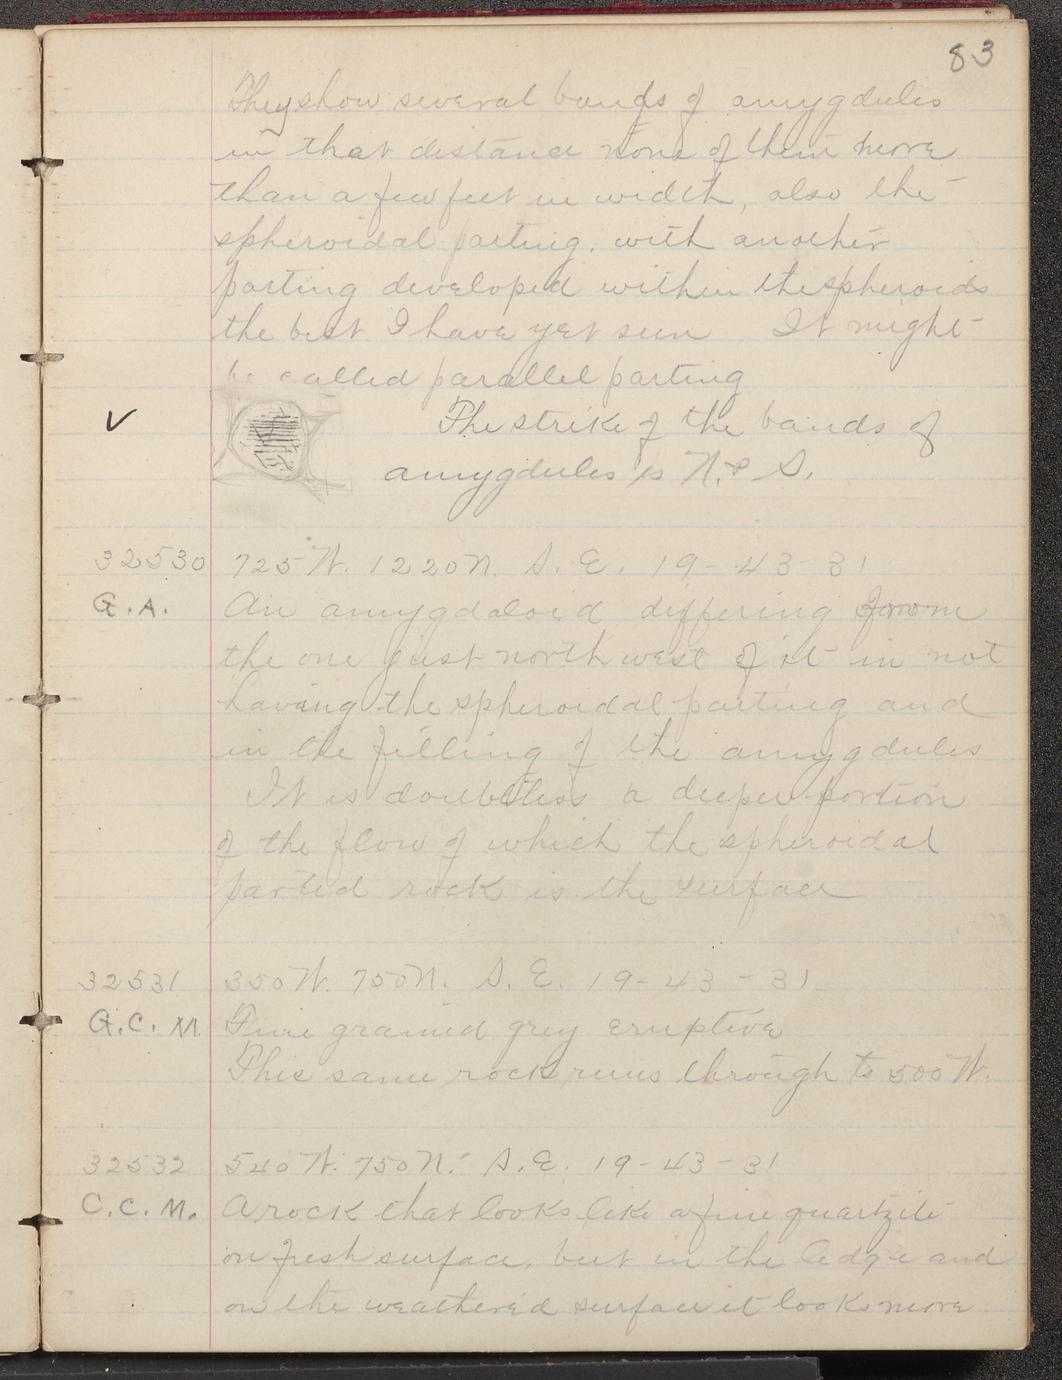 83
They show several bands of amygdules
in that distance none of them more
than a few feet in width, also the
spheroidal parting. with another
parting developed within the spheroids
the best I have yet seen It might
be called parallel parting
✓ The strike of the bands of
amygdules is N. & S.
32530 725 W. 1220 N. S. E. 19-43-31
G.A. An amygdaloid differing from
the one just north west of it in not
having the spheroidal parting and
in the filling of the amygdules
It is doubtless a deeper portion
of the flow of which the spheroidal
parted rock is the surface
32531 350 W. 750 N. S. E. 19-43-31
G.C.M. Fine grained grey eruptive
This same rock runs through to 500 W.
32532 540 W. 750 N. S. E. 19-43-31
C.C.M. A rock that looks like a fine quartzite
on fresh surface, but in the ledge and
on the weathered surface it looks more